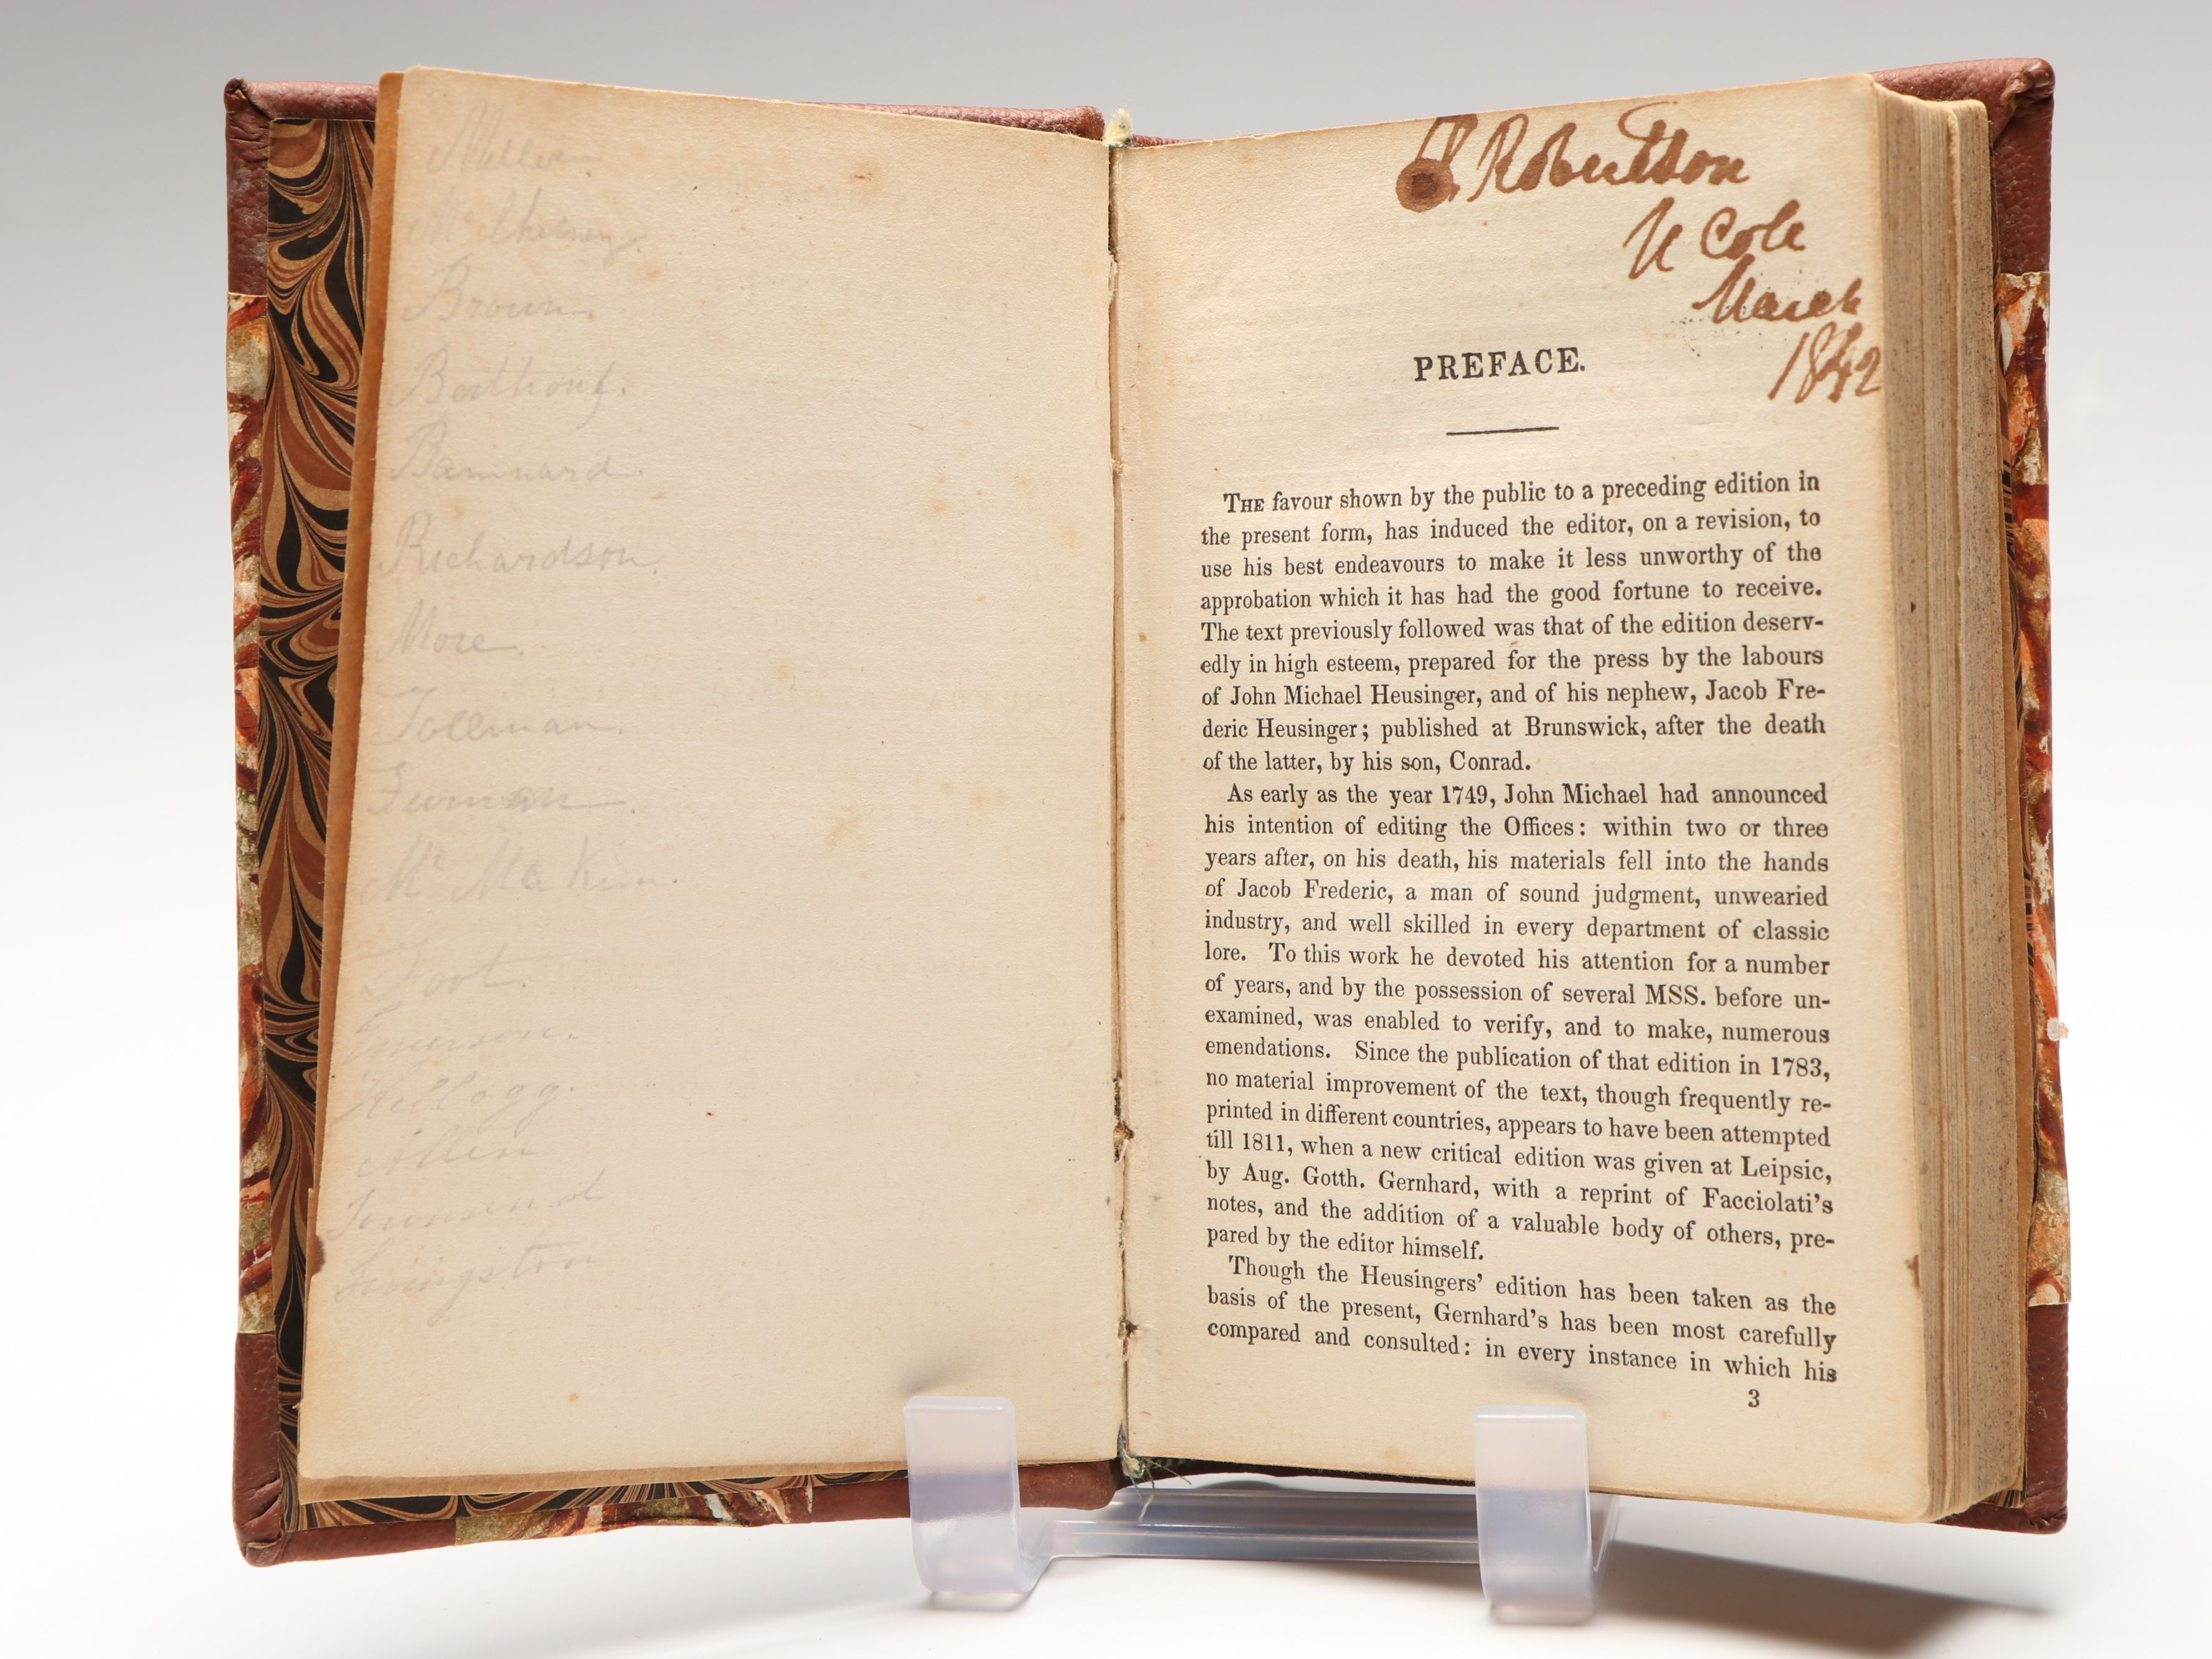 Miller.
Brown.
Berthouf.
Richardson.
More.
Tollman.
Furman.
Foot.
Emerson.
Kellogg.
Allen
Townsend
Livingston
Robertson
U Cole
March
1842
PREFACE.
THE favour shown by the public to a preceding edition in
the present form, has induced the editor, on a revision, to
use his best endeavours to make it less unworthy of the
approbation which it has had the good fortune to receive.
The text previously followed was that of the edition deserv-
edly in high esteem, prepared for the press by the labours
of John Michael Heusinger, and of his nephew, Jacob Fre-
deric Heusinger; published at Brunswick, after the death
of the latter, by his son, Conrad.
As early as the year 1749, John Michael had announced
his intention of editing the Offices: within two or three
years after, on his death, his materials fell into the hands
of Jacob Frederic, a man of sound judgment, unwearied
industry, and well skilled in every department of classic
lore. To this work he devoted his attention for a number
of years, and by the possession of several MSS. before un-
examined, was enabled to verify, and to make, numerous
emendations. Since the publication of that edition in 1783,
no material improvement of the text, though frequently re-
printed in different countries, appears to have been attempted
till 1811, when a new critical edition was given at Leipsic,
by Aug. Gotth. Gernhard, with a reprint of Facciolati's
notes, and the addition of a valuable body of others, pre-
pared by the editor himself.
Though the Heusingers' edition has been taken as the
basis of the present, Gernhard's has been most carefully
compared and consulted: in every instance in which his
3